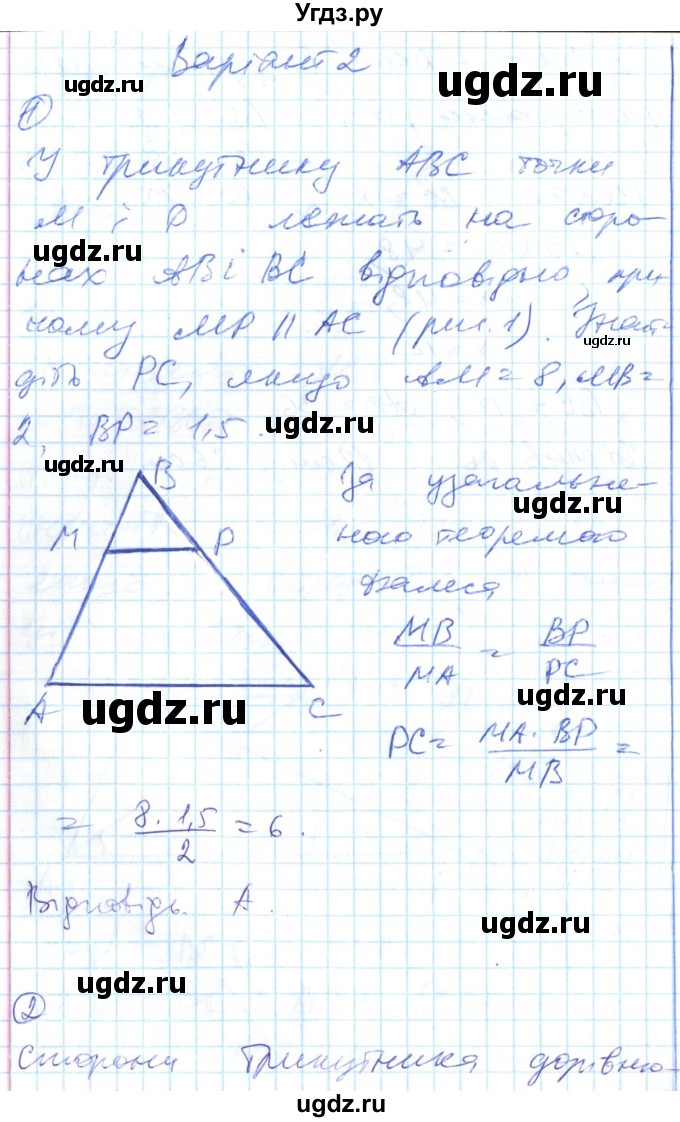 Угдз.ру
Варіант 2
1
У трикутнику ABC точки
M і P лежать на сторо-
нах AB і BC відповідно, при-
чому MP || AC (рис. 1). Знай-
діть PC, якщо AM = 8, MB =
2, BP = 1,5.
B
M P
A C
За узагальне-
ною теоремою
Фалеса
MB/MA = BP/PC
PC = MA · BP / MB =
= 8 · 1,5 / 2 = 6.
Відповідь. А.
2
Сторони трикутника дорівню-
ugdz.ru
ugdz.ru
ugdz.ru
ugdz.ru
ugdz.ru
ugdz.ru
ugdz.ru
ugdz.ru
ugdz.ru
ugdz.ru
ugdz.ru
ugdz.ru
ugdz.ru